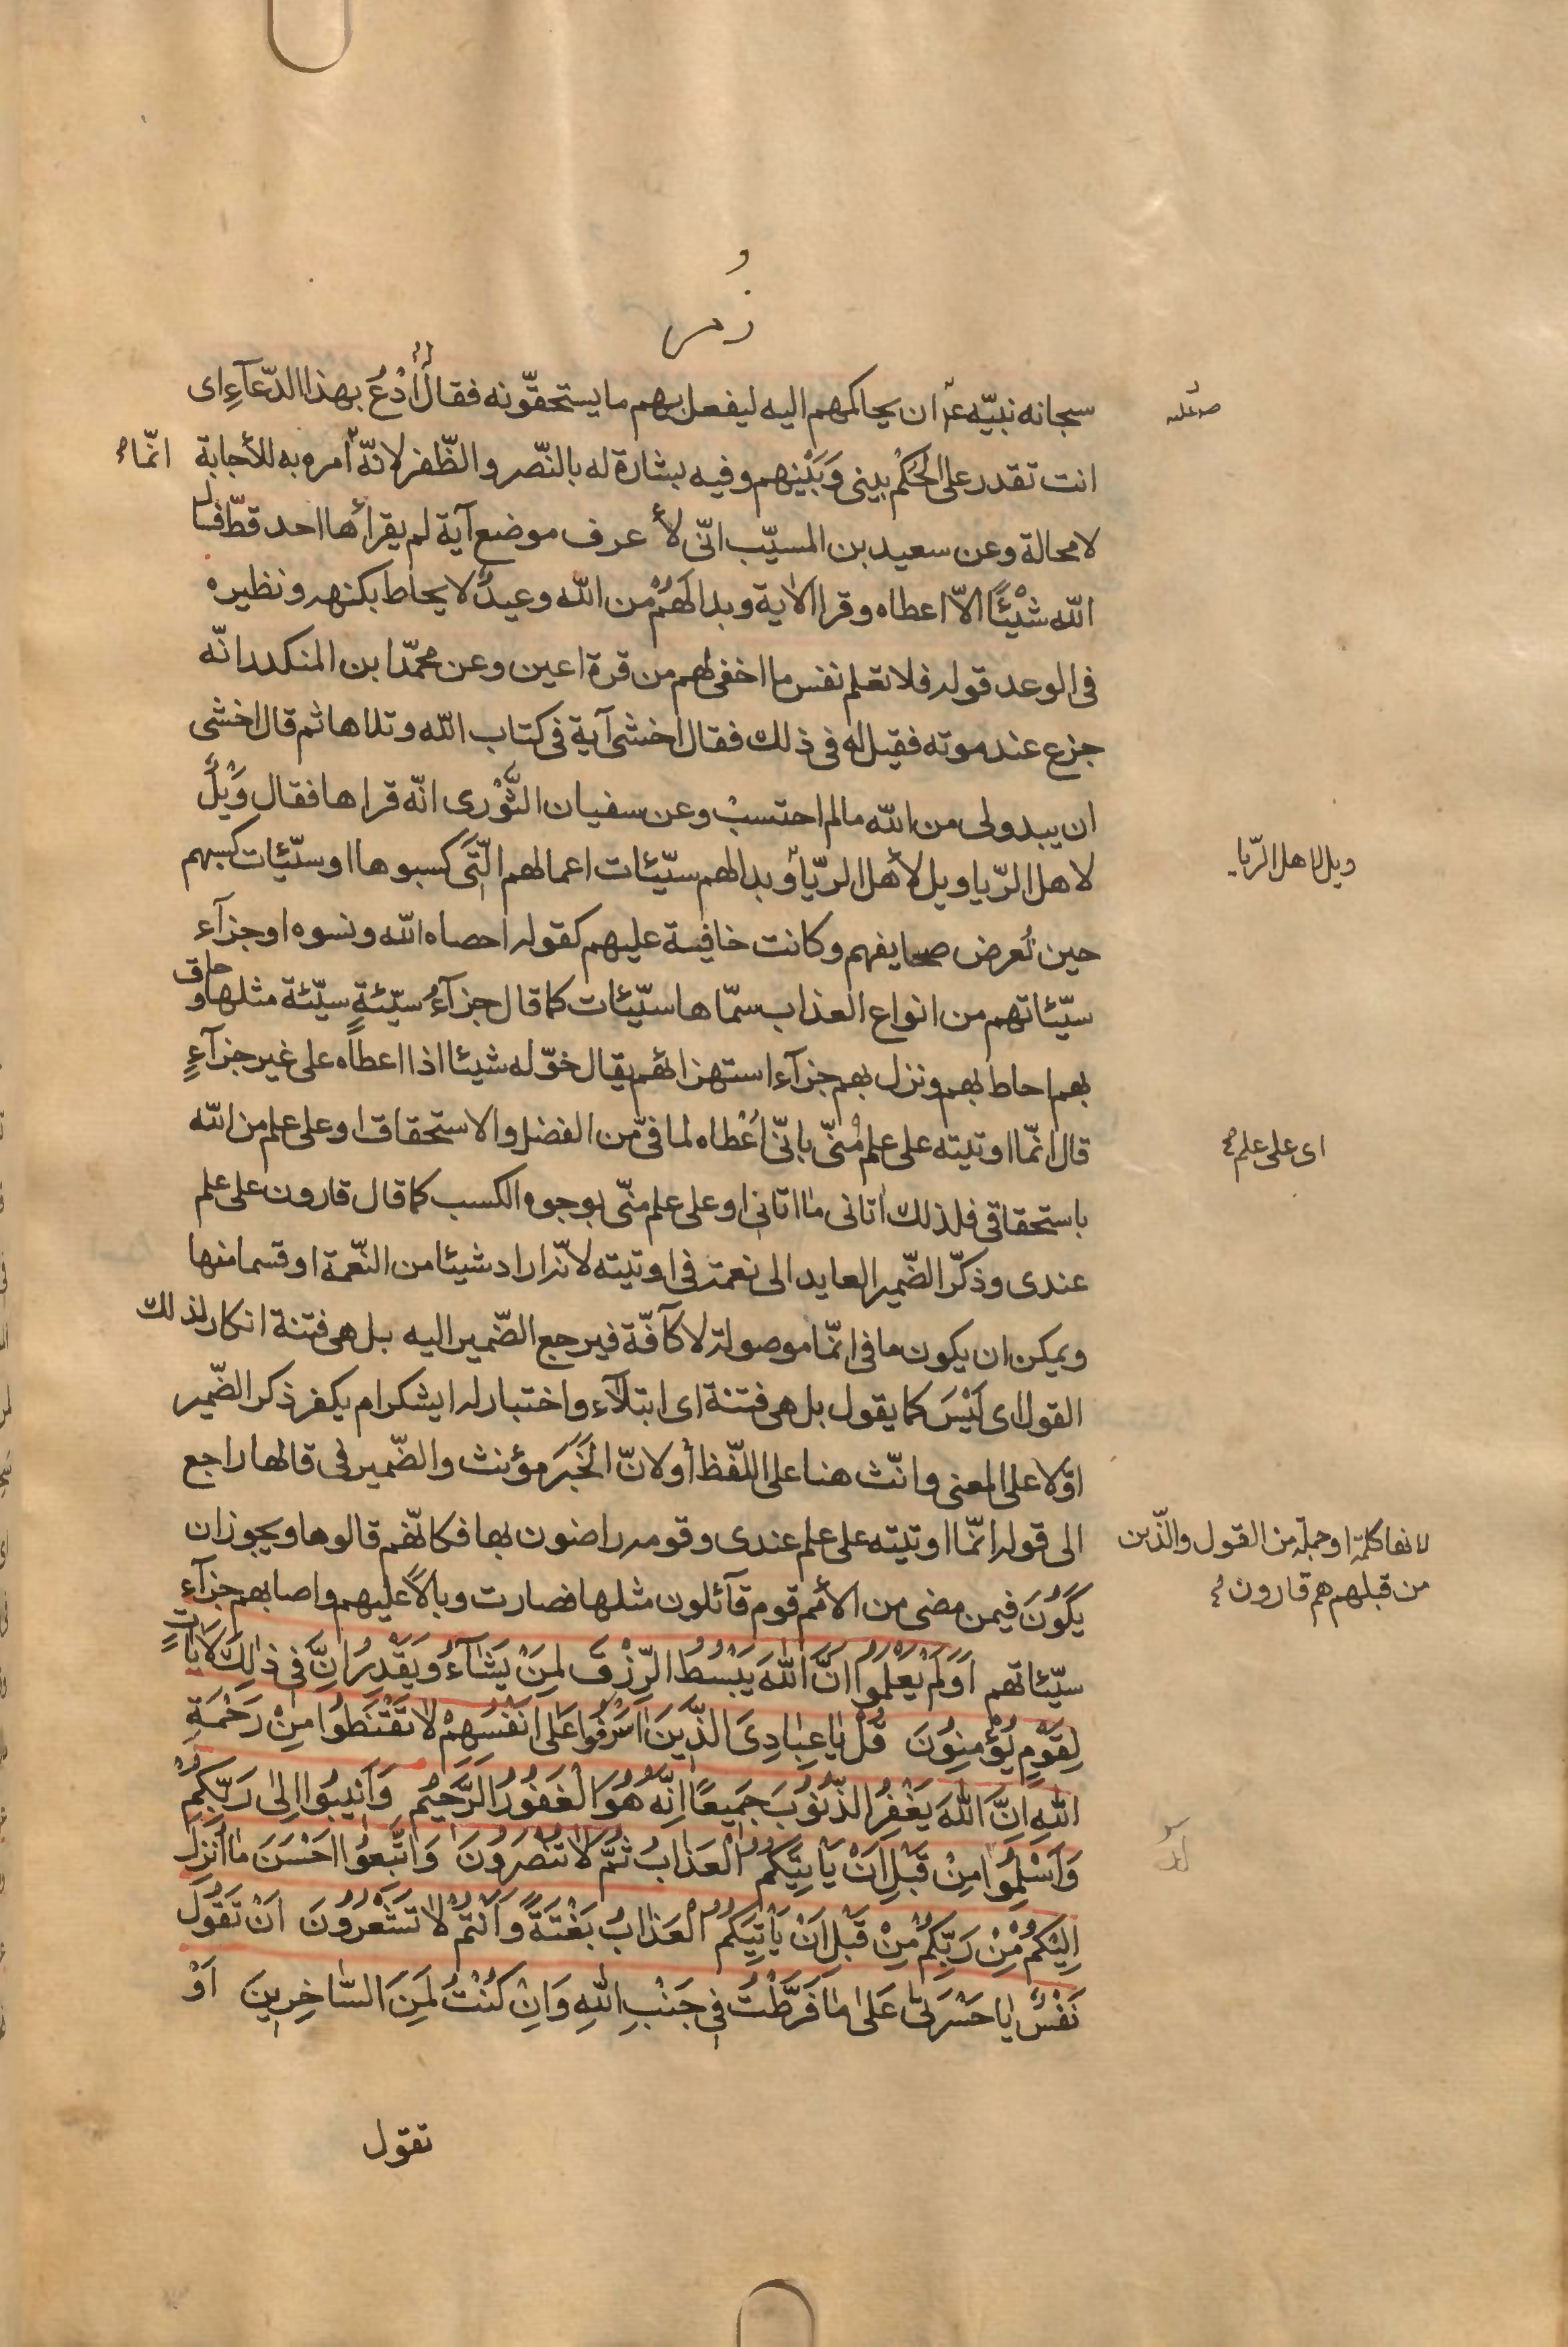 زمر
سبحانه نبيّه ع ان يحاكمهم اليه ليفعل بهم ما يستحقّونه فقال أُدْعُ بهذا الدّعآءِ اى
صم عليه
انت تقدر على الحُكْم بينى وَبَيْنِهم وفيه بشارة له بالنّصر والظّفر لانّه امره به للأجابة
انّما
لا محالة وعن سعيد بن المسيّب انّى لأ عرف موضع آية لم يقرأها احد قطّ فسأل
الله شَيْئًا الاّ اعطاه وقرا الاية وبدا لَهُمْ من الله وعيدٌ لا يحاط بكنهه ونظيره
فى الوعد قوله فلا تعلم نفس ما اخفى لهم من قرة اعين وعن محمّد ابن المنكدر انّه
جزع عند موته فقيل له فى ذلك فقال اخشى آية فى كتاب الله وتلاها ثم قال اخشى
ان يبدو لى من الله ما لم احتسبْ وعن سفيان الثَّوْرى انّه قراها فقال وَيْلٌ
لاهل الرّيا ويل لأهل الرّيا وبدا لهم سيّئات اعمالهم الّتى كسبوها او سيّئات كسبهم
ويل لاهل الرّيا
حين تُعرض صحايفهم وكانت خافية عليهم كقوله احصاه الله ونسوه او جزآء
سيّئاتهم من انواع العذاب سمّاها سيّئات كما قال جزآءُ سيّئةٍ سيّئة مثلها وحاق
بهم احاط بهم ونزل بهم جزآء استهزائهم يقال خوّله شيئا اذا اعطاه على غير جزآءٍ
قال انّما اوتيته على علم مُنىّ بانّى أُعْطاه لما فىّ من الفضل والاستحقاق او على علم من الله
اى على علم
باستحقاقى فلذلك اتانى ما اتانى او على علم منّى بوجوه الكسب كما قال قارون على علم
عندى وذكّر الضّمير العايد الى نعمة فى اوتيته لانّه اراد شيئا من النّعمة او قسما منها
ويمكن ان يكون ما فى انّما موصولة لا كآفّة فيرجع الضّمير اليه بل هى فتنة انكار لذلك
القول اى لَيْسَ كما يقول بل هى فتنة اى ابتلآء واختبار له ايشكر ام يكفر ذكر الضّمير
اوّلا على المعنى وانّث هنا على اللّفظ أو لانّ الخَبَرَ مؤنث والضّمير فى قالها راجع
الى قوله انّما اوتيته على علم عندى وقومه راضون بها فكانّهم قالوها ويجوز ان
لانها كلمة او جملة من القول والّذين
من قبلهم هم قارون
يَكُونَ فيمن مضى من الأمم قوم قآئلون مثلها فصارت وبالاً عليهم واصابهم جزآء
سيّئاتهم اَوَلَمْ يَعْلَمُوا اَنَّ اللهَ يَبْسُطُ الرِّزْقَ لِمَنْ يَشَآءُ وَيَقْدِرُ اِنَّ فى ذٰلِكَ لَاٰيَاتٍ
لِقَوْمٍ يُؤْمِنُونَ قُلْ يَا عِبَادِىَ الَّذِينَ اَسْرَفُوا عَلٰى اَنْفُسِهِمْ لَا تَقْنَطُوا مِنْ رَحْمَةِ
اللهِ اِنَّ اللهَ يَغْفِرُ الذُّنُوبَ جَمِيعًا اِنَّهُ هُوَ الْغَفُورُ الرَّحِيمُ وَاَنِيبُوا اِلٰى رَبِّكُمْ
وَاَسْلِمُوا مِنْ قَبْلِ اَنْ يَاتِيَكُمُ الْعَذَابُ ثُمَّ لَا تُنْصَرُونَ وَاتَّبِعُوا اَحْسَنَ مَا اُنْزِلَ
اِلَيْكُمْ مِنْ رَبِّكُمْ مِنْ قَبْلِ اَنْ يَاْتِيَكُمُ الْعَذَابُ بَغْتَةً وَاَنْتُمْ لَا تَشْعُرُونَ اَنْ تَقُولَ
نَفْسٌ يَا حَسْرَتٰى عَلٰى مَا فَرَّطْتُ فِى جَنْبِ اللهِ وَاِنْ كُنْتُ لَمِنَ السَّاخِرِينَ اَوْ
تقول